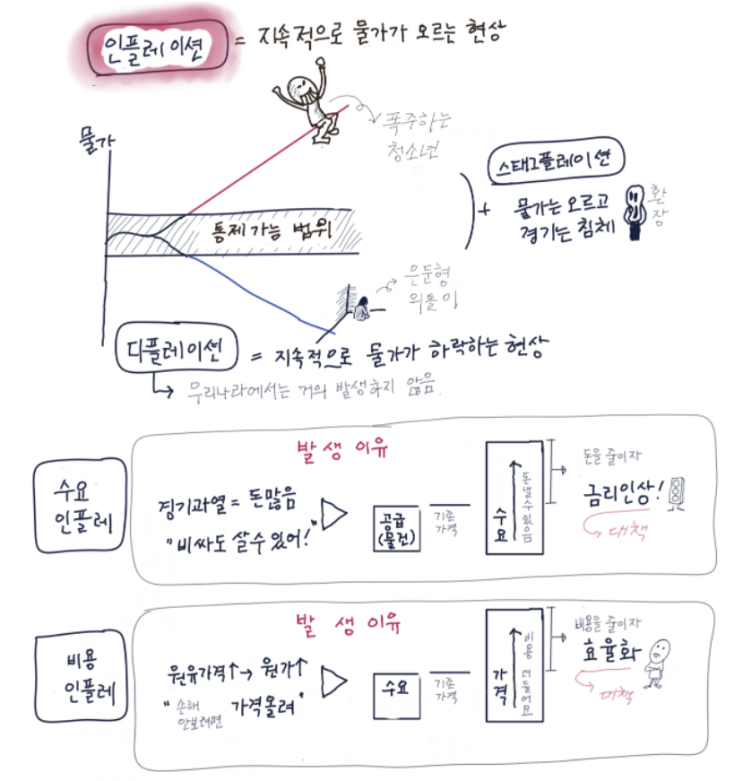 인플레이션 = 지속적으로 물가가 오르는 현상
물가
폭주하는
청소년
스태그플레이션
+ 물가는 오르고
경기는 침체
환장
통제가능 범위
은둔형
외톨이
디플레이션 = 지속적으로 물가가 하락하는 현상
우리나라에서는 거의 발생하지 않음
수요
인플레
발생이유
경기과열 = 돈많음
"비싸도 살수있어!"
공급
(물건)
기존
가격
수요
돈낼수있음
돈을 줄이자
금리인상!
대책
비용
인플레
발생이유
원유가격↑→ 원가↑
"손해
안보려면 가격올려"
수요
기존
가격
가격
비용 더들어요
비용을 줄이자
효율화
대책